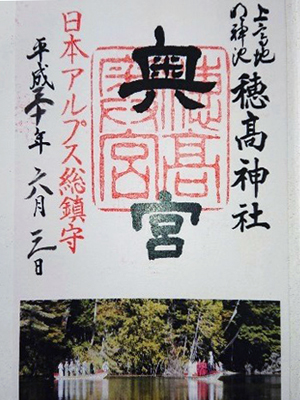 上高地
明神池
穂髙神社
奥宮
穂髙
日本アルプス総鎮守
平成三十年 六月三日